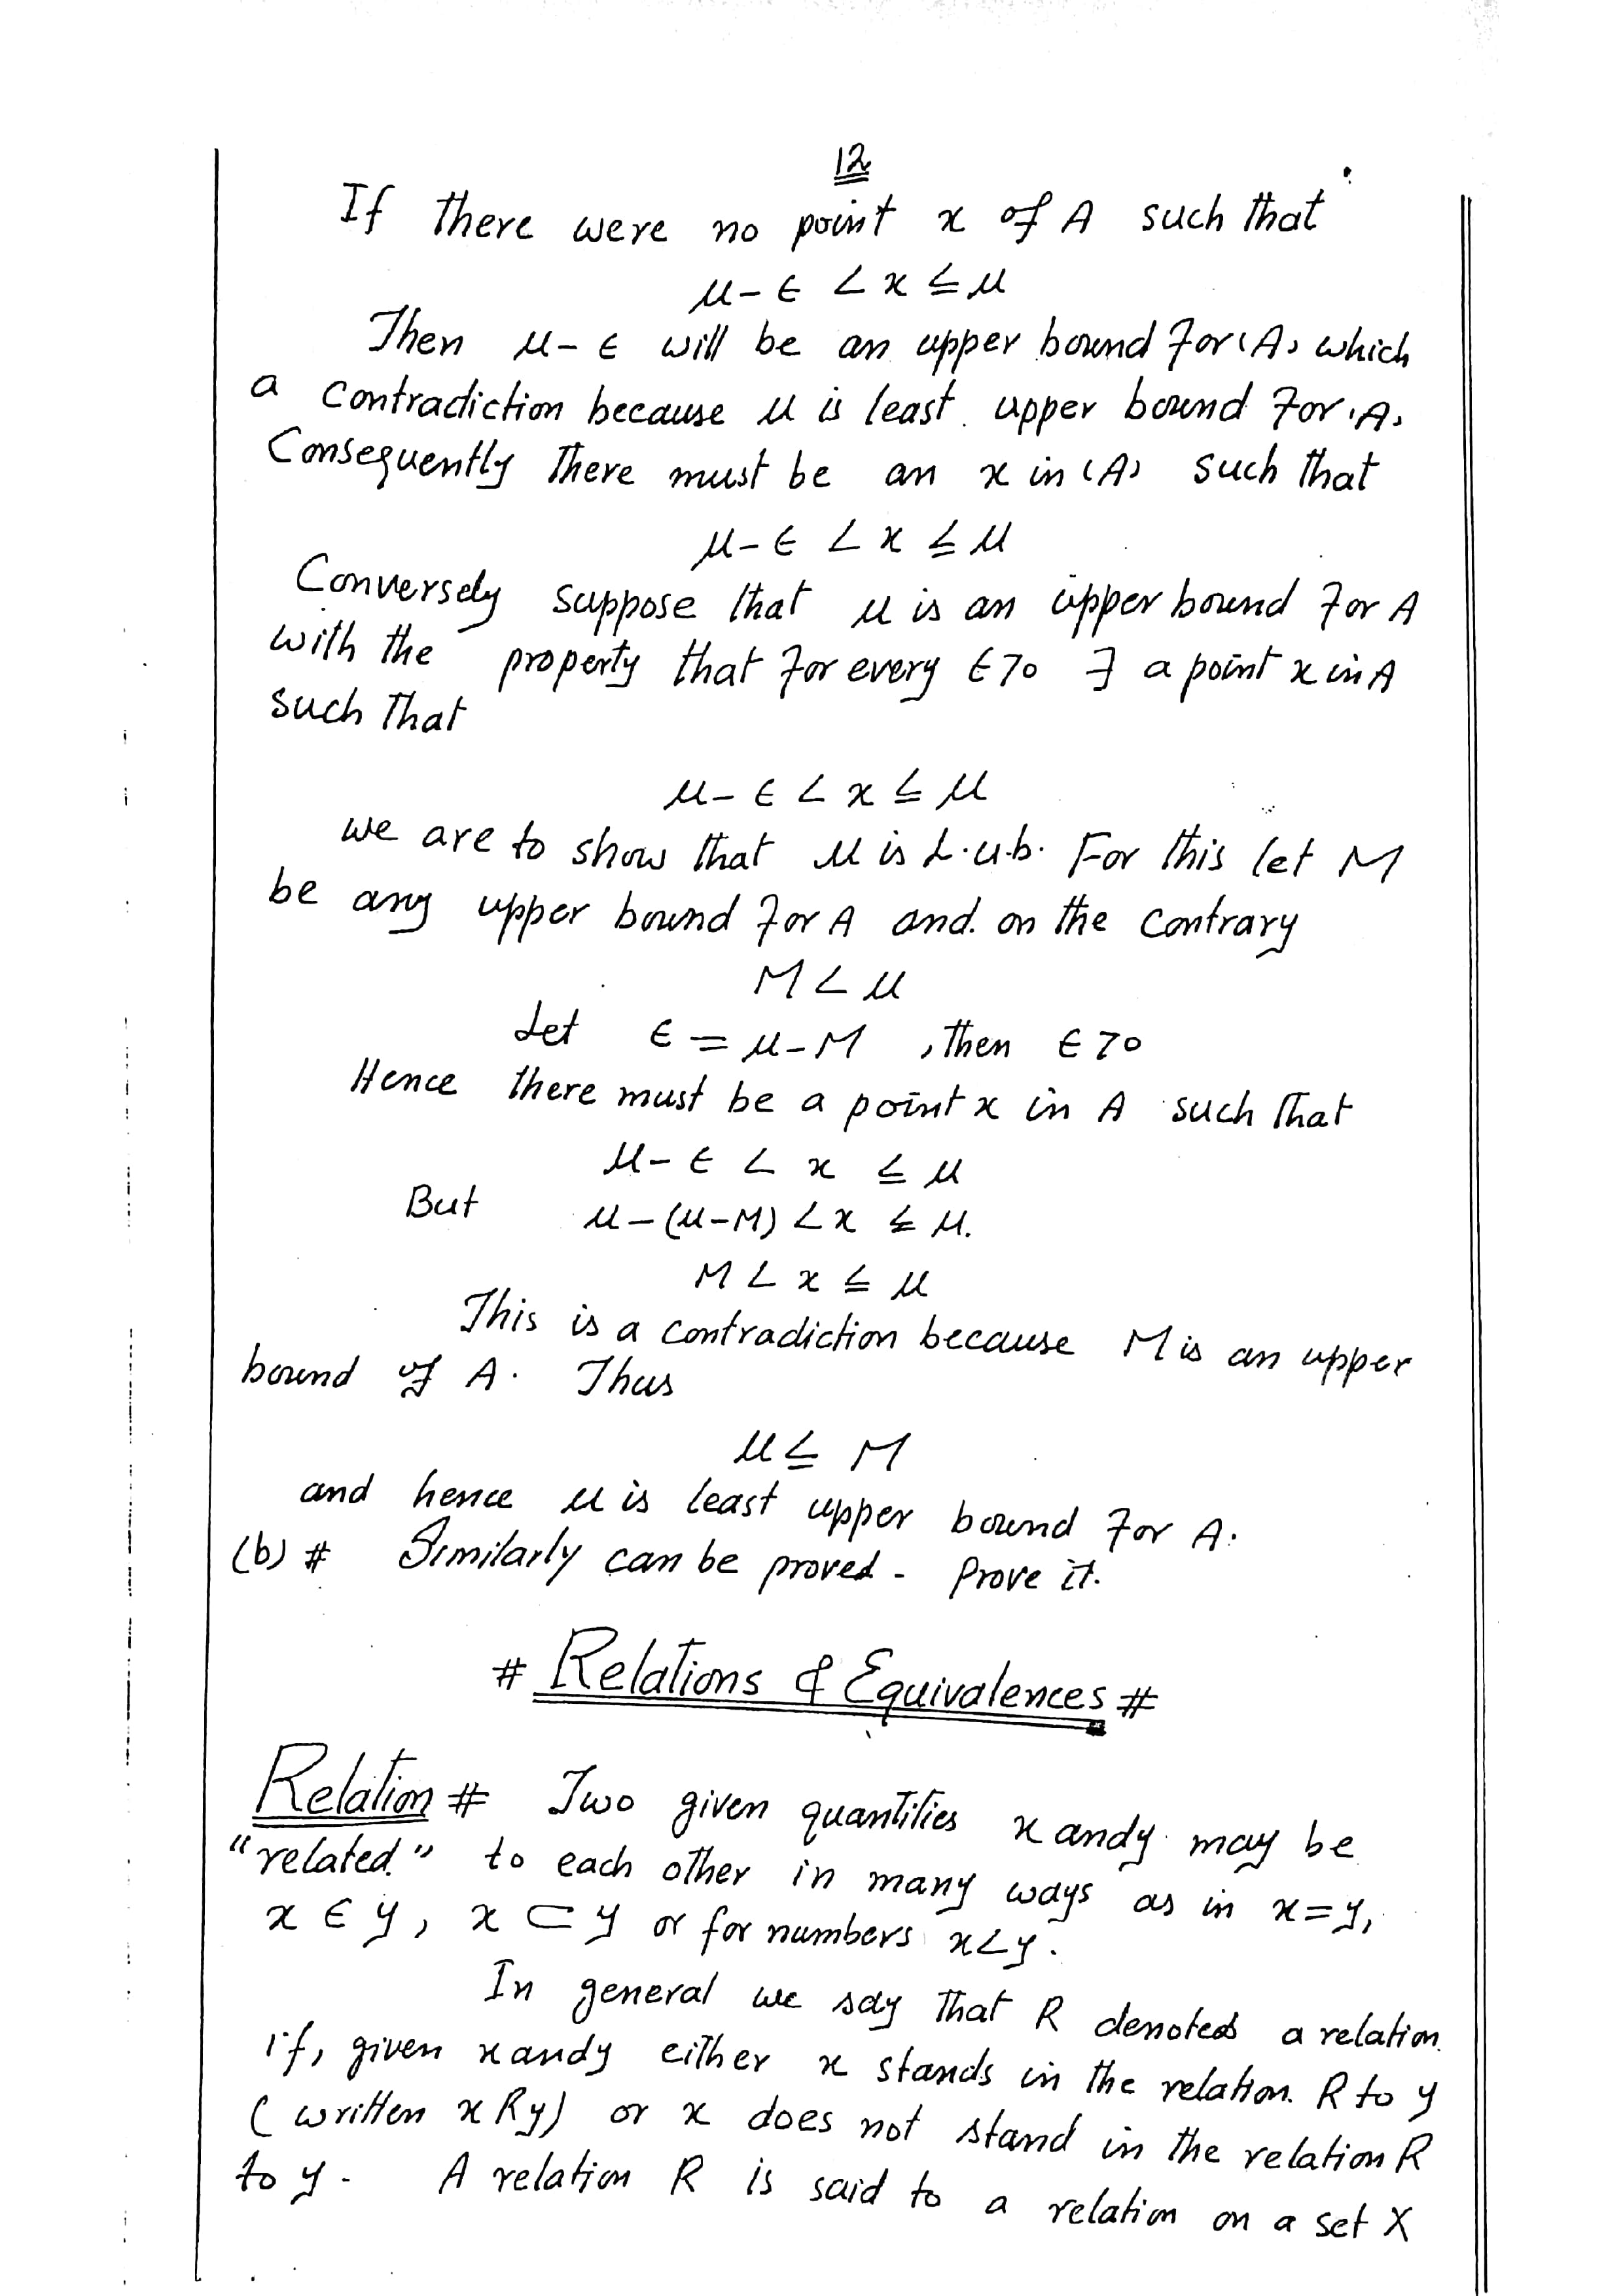 12
If there were no point x of A such that
μ-ϵ < x ≤ μ
Then μ-ϵ will be an upper bound for (A) which
a contradiction because μ is least upper bound for (A)
Consequently there must be an x in (A) such that
μ-ϵ < x ≤ μ
Conversely suppose that μ is an upper bound for A
with the property that for every ϵ>0 ∃ a point x in A
such that
μ-ϵ < x ≤ μ
we are to show that μ is L.u.b. For this let M
be any upper bound for A and on the contrary
M < μ
Let ϵ = μ-M , then ϵ>0
Hence there must be a point x in A such that
μ-ϵ < x ≤ μ
But μ-(μ-M) < x ≤ μ.
M < x ≤ μ
This is a contradiction because M is an upper
bound of A. Thus
μ ≤ M
and hence μ is least upper bound for A.
(b) # Similarly can be proved - Prove it.
# Relations & Equivalences #
Relation # Two given quantities x and y may be
"related" to each other in many ways as in x=y,
x ∈ y, x ⊂ y or for numbers x<y.
In general we say that R denoted a relation
if, given x and y either x stands in the relation R to y
(written xRy) or x does not stand in the relation R
to y - A relation R is said to a relation on a set X